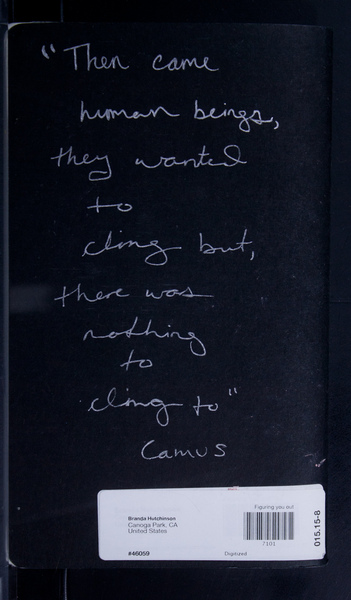 "Then came
human beings,
they wanted
to
cling but,
there was
nothing
to
cling to"
Camus
Figuring you out
Branda Hutchinson
Canoga Park, CA
United States
7101
#46059
Digitized
015.15-8